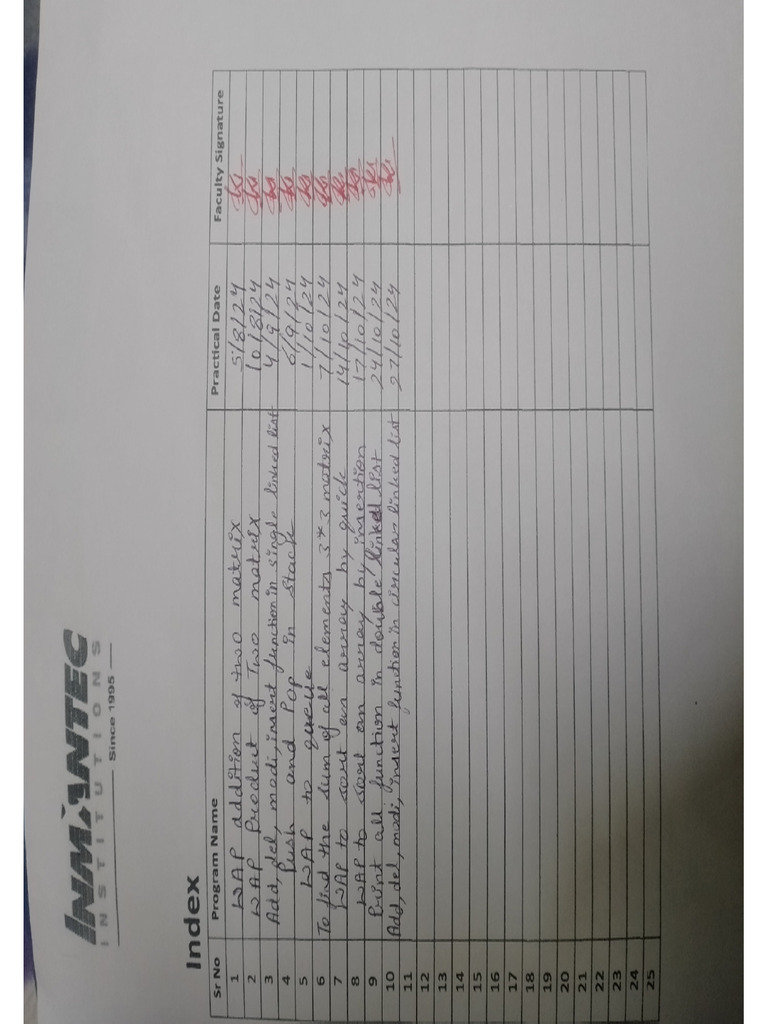 INMANTEC
INSTITUTIONS
Since 1995
Index
Sr No Program Name Practical Date Faculty Signature
1 WAP addition of two matrix 5/8/24
2 WAP Product of Two matrix 10/8/24
3 Add, del, modi, insert function in single linked list 4/9/24
4 Push and Pop in Stack 6/9/24
5 WAP to queue 1/10/24
6 To find the sum of all elements 3*3 matrix 7/10/24
7 WAP to sort an array by quick 14/10/24
8 WAP to sort an array by insertion 17/10/24
9 Print all function in double linked list 24/10/24
10 Add, del, modi, insert function in circular linked list 27/10/24
11
12
13
14
15
16
17
18
19
20
21
22
23
24
25